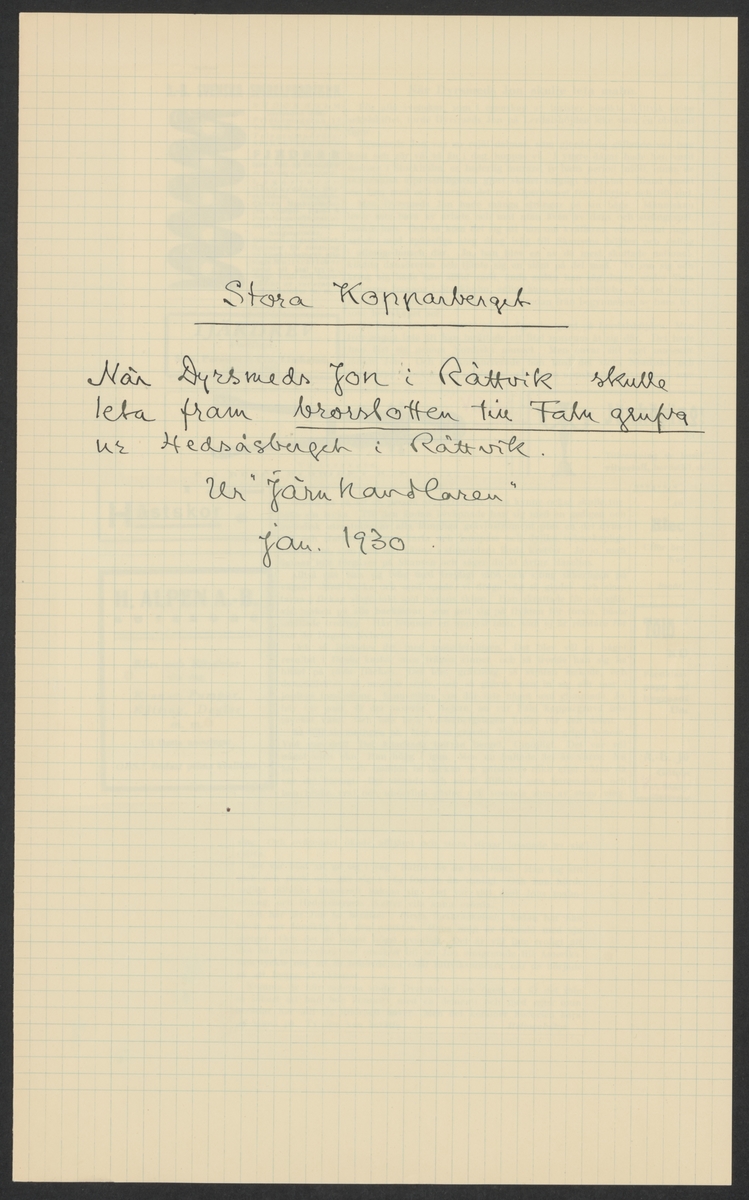 Stora Kopparberget
När Dyrsmeds Jon i Rättvik skulle
leta fram brorslotten till Falu gruva
ur Hedsåsberget i Rättvik.
Ur "Järnhandlaren"
jan. 1930.